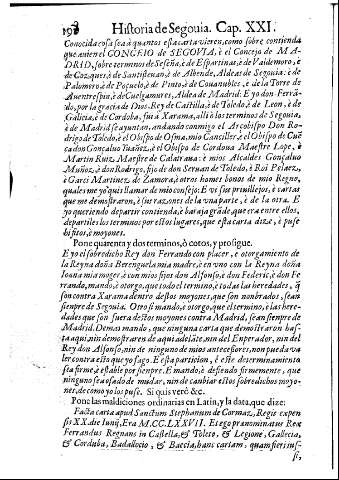 198 Historia de Segouia. Cap. XXI.
Conocida cosa sea à quantos esta carta vieren, como sobre contienda
que auien el CONCEJO de SEGOVIA, è el Concejo de MA-
DRID, sobre terminos de Seseña, è de Espartinas, è de Valdemoro, è
de Cozques, è de Santistenan, è de Albende, Aldeas de Segouia: è de
Palomero, è de Poçuelo, è de Pinto, è de Couanubles, è de la Torre de
Auentrespin, è de Cueluamures, Aldea de Madrid. E yo don Ferrã-
do, por la gracia de Dios, Rey de Castilla, è de Toledo, è de Leon, è de
Galicia, è de Cordoba, fui à Xarama, alli à los terminos de Segouia,
è de Madrid se ayuntan, andando conmigo el Arçobispo Don Ro-
drigo de Toledo, è el Obispo de Osma, mio Canciller, è el Obispo de Cuẽ
ca don Gonçaluo Yuañez, è el Obispo de Cordoua Maestre Lope, è
Martin Ruiz Maestre de Calatraua: è mios Alcaldes Gonçaluo
Muñoz, è don Rodrigo, fijo de don Seruan de Toledo, è Roi Pelaez,
è Garci Martinez de Zamora, è otros homes bonos de mio Regno,
quales me yo quis llamar de mio consejo: E vi sus priuillejos, è cartas
que me demostraron, è sus razones de la vna parte, è de la otra. E
yo queriendo departir contienda, è baraja grãde, que era entre ellos,
departiles los terminos por estos lugares, que esta carta dize, è puse
hi fitos, è moyones.
Pone quarenta y dos terminos, ò cotos, y prosigue.
E yo el sobredicho Rey don Ferrando con placer, è otorgamiento de
la Reyna doña Berenguela mia madre, è en vno con la Reyna doña
Iouna mia moger, è con mios fijos don Alfonso, è don Federic, è don Fe
rrando, mando, è otorgo, que todo el termino, è todas las heredades, q̃
son contra Xarama dentro destos moyones, que son nonbrados, sean
siempre de Segouia. Otro si mando, è otorgo, que el termino, è las here-
dades que son fuera destos moyones contra Madrid, sean siempre de
Madrid. Demas mando, que ninguna carta que demostraron has-
ta aqui, nin demostraren de aqui adelãte, nin del Emperador, nin del
Rey don Alfonso, nin de ninguno de mios antecessores, non pueda va-
ler contra esto que yo fago. E esta particion, è este determinamiento
sea firme, è estable por siempre. E mando, è defiendo firmemente, que
ninguno sea osado de mudar, nin de cambiar estos sobredichos moyo-
nes, de como yo los puse. Si quis verò &c.
Pone las maldiciones ordinarias en Latin, y la data, que dize:
Facta carta apud Sanctum Stephanum de Cormaz, Regis expen
sis XX. die Iunij, Era M.CC.LXXVII. Et ego prænominatus Rex
Ferrandus Regnans in Castella, & Toleto, & Legione, Gallecia,
& Corduba, Badallocio, & Baecia, hanc cartam, quam fieri ius-
si,